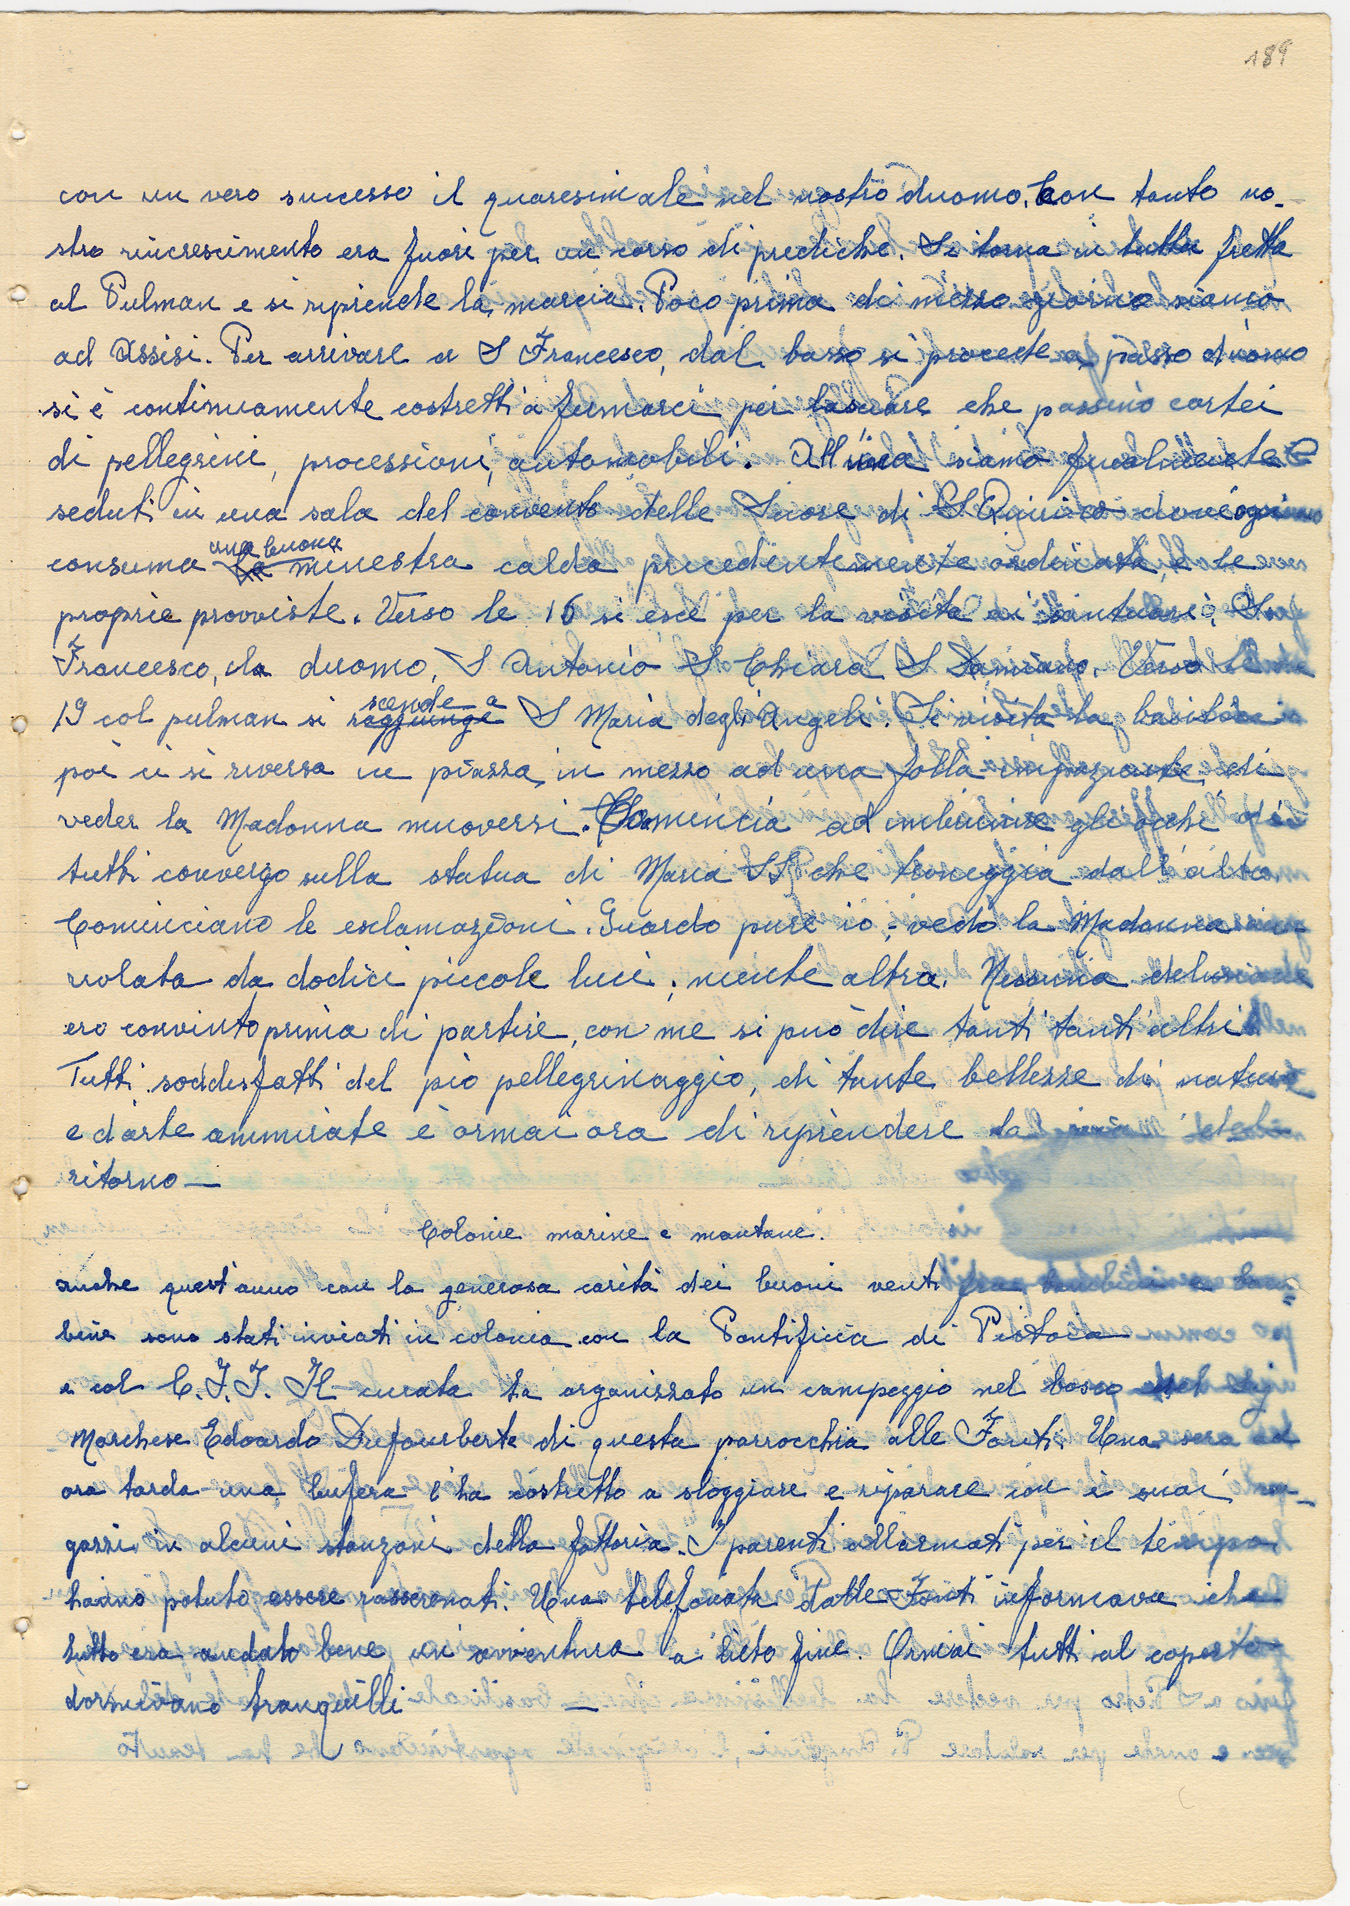 189
con un vero successo il quaresimale nel nostro duomo. Con tanto no-
stro rincrescimento era fuori per un corso di prediche. Si torna in tutta fretta
al Pulman e si riprende la marcia. Poco prima di mezzo giorno siamo
ad Assisi. Per arrivare a S Francesco, dal basso si procede a passo d'uomo
si è continuamente costretti a fermarci per lasciare che passino cortei
di pellegrini, processioni, automobili. All'una siamo finalmente
seduti in una sala del convento delle Suore di S Quirico dove ognuno
consuma una buona minestra calda precedentemente ordinata, e le
proprie provviste. Verso le 16 si esce per la visita ai santuari, San
Francesco, il duomo, S Antonio S Chiara S Damiano. Verso le
19 col pulman si raggiunge scende a S Maria degli Angeli. Si visita la basilica
poi ci si riversa in piazza, in mezzo ad una folla impaziente, di
veder la Madonna muoversi. Comincia ad imbrunire gli occhi di
tutti convergo sulla statua di Maria SS che troneggia dall'alto.
Cominciano le esclamazioni. Guardo pure io, vedo la Madonna
da dodici piccole luci, niente altro. Nessuna delusione
ero convinto prima di partire, con me si può dire tanti tanti altri
Tutti soddisfatti del pio pellegrinaggio, di tante bellezze di natura
e d'arte ammirate è ormai ora di riprendere la via del
ritorno —
Colonie marine e montane.
Anche quest'anno con la generosa carità dei buoni venti fra bambini e bam=
bine sono stati inviati in colonia con la Pontificia di Pistoia
e col C.I.F. Il curato ha organizzato un campeggio nel bosco del
Marchese Edoardo Dufourberte di questa parrocchia alle Fonti. Una sera ad
ora tarda una bufera l'ha costretto a sloggiare e riparare con i suoi ra-
gazzi in alcuni stanzoni della fattoria. I parenti allarmati per il tempo
hanno potuto essere rasserenati. Una telefonata dalle Fonti informava che
tutto era andato bene, un avventura a lieto fine. Ormai tutti al coperto
dormivano tranquilli —